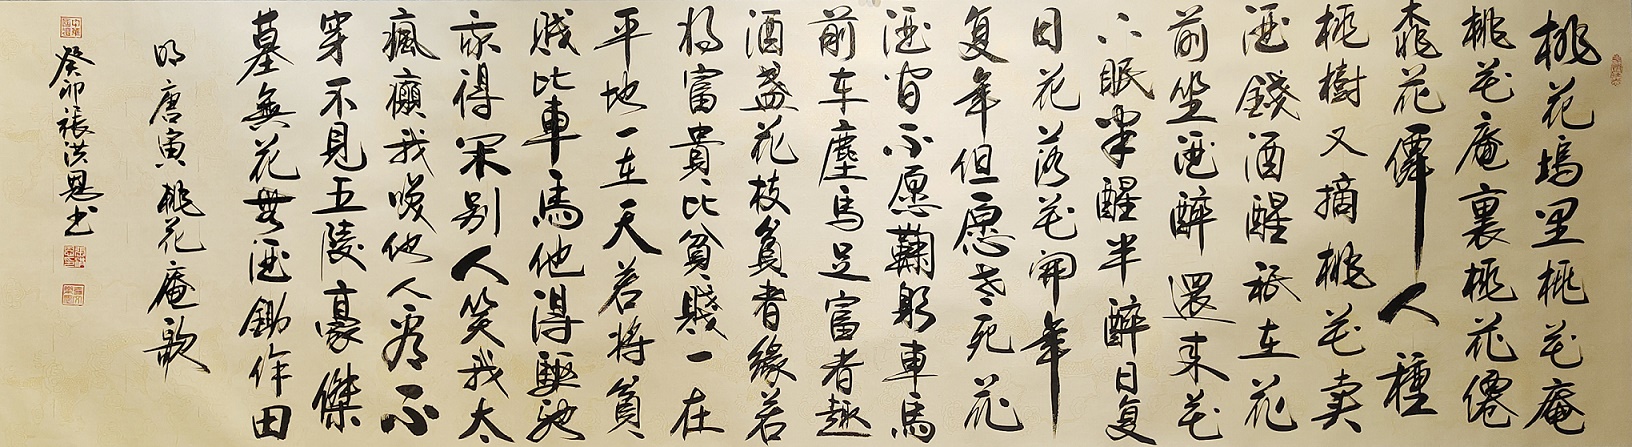 桃花塢里桃花庵
桃花庵裏桃花僊
桃花僊人種
桃樹又摘桃花卖
酒錢酒醒祗在花
前坐酒醉還来花
下眠半醒半醉日复
日花落花開年
复年但愿老死花
酒间不愿鞠躬車馬
前车塵馬足富者趣
酒盏花枝貧者緣若
将富貴比貧賤一在
平地一在天若将貧
賤比車馬他得驅馳
得闲别人笑我太
瘋癲我咲他人看不
穿不見五陵豪傑
墓無花無酒鋤作田
明唐寅桃花庵歌
癸卯張洪恩书